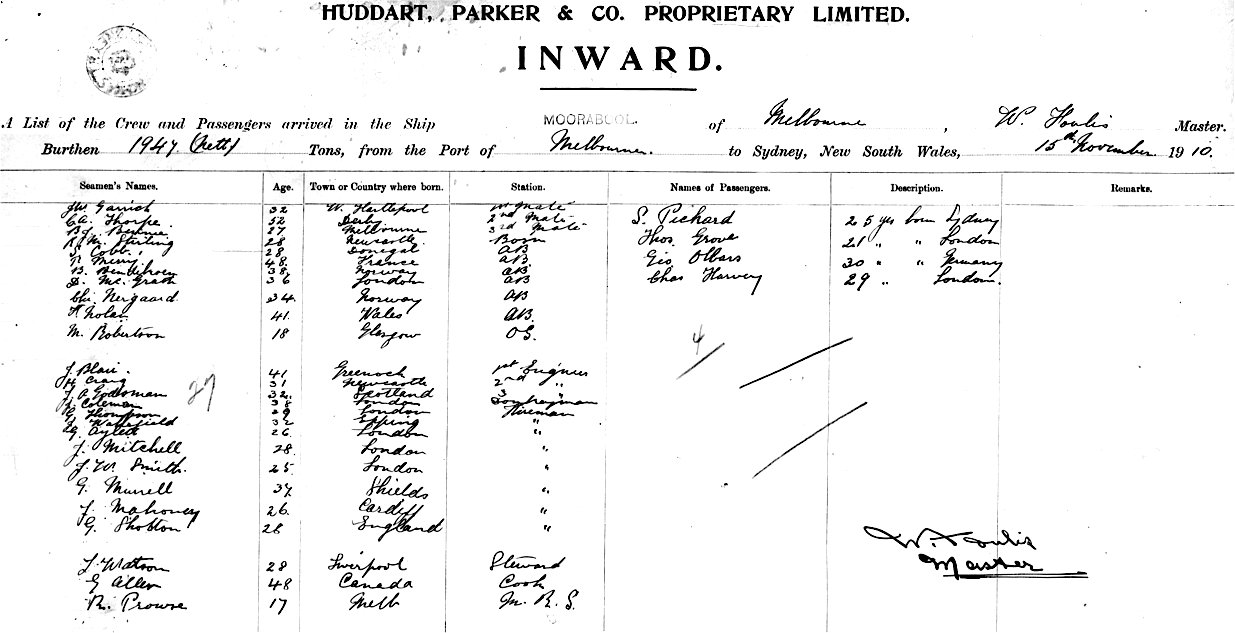 HUDDART, PARKER & CO. PROPRIETARY LIMITED.
INWARD.
A List of the Crew and Passengers arrived in the Ship MOORABOOL. of Melbourne, W. Foulis Master.
Burthen 1947 (nett) Tons, from the Port of Melbourne. to Sydney, New South Wales, 15th November 1910.
Seamen's Names. Age. Town or Country where born. Station. Names of Passengers. Description. Remarks.
32 W. Hartlepool 1st Mate
C.A. Thorpe Derby 2nd Mate S. Pichard 25 yrs born Sydney
27 Melbourne 3rd Mate
Stirling 28 Newcastle Thos. Grove 21 " " London
Cobb 28 Donegal AB
48 France AB Geo Olbars 30 " " Germany
38 Norway AB
D. McGrath 36 London AB Chas Harvey 29 " London.
Chr. Nergaard 34 Norway AB
Nolan 41 Wales AB
M. Robertson 18 Glasgow OS.
4
J. Blair 41 Greenock 1st Engineer
Craig 31 Newcastle 2nd "
27
J. A. Goodsman 32 Scotland 3
Coleman 38 London Donkeyman
G. Thompson 29 London Fireman
Wakefield 32 Epping "
G. Aylett 26 London "
J. Mitchell 28 London "
J. W. Smith. 25 London "
G. Murrell 37 Shields "
J. Mahoney 26 Cardiff "
G. Shotton 28 England "
W. Foulis
Master
J. Watson 28 Liverpool Steward
G Allen 48 Canada Cook
R. Prowse 17 Melb M. R. S.